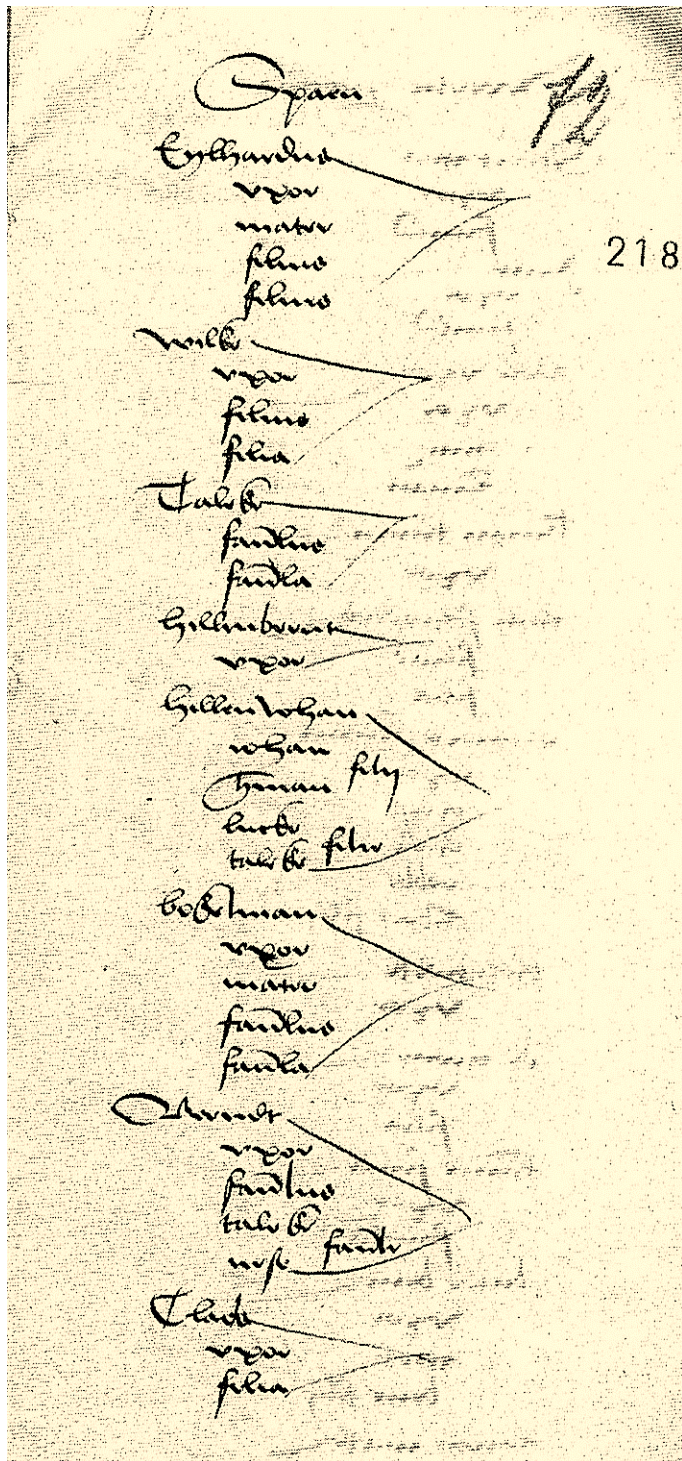 Spaen
72
Eylhardus
vxor
mater
218
filius
filius
Wilke
vxor
filius
filia
Taleke
famlus
famla
hillenbernt
vxor
hillen Johan
Johan
Hman filij
lucke
taleke filie
bokelman
vxor
mater
famlus
famla
Berndt
vxor
famlus
taleke
nese famle
Claes
vxor
filia